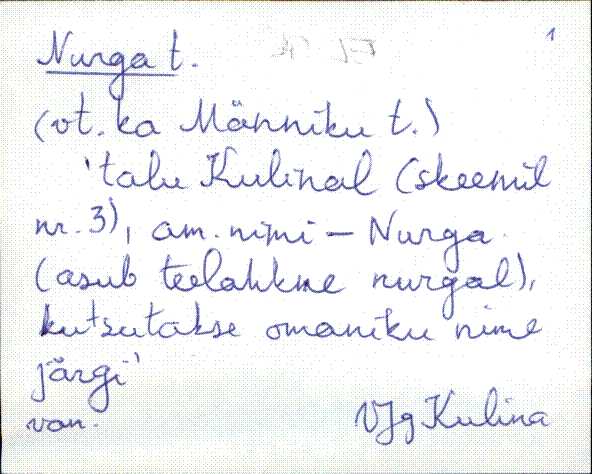 Nurga t. 1
(vt. ka Männiku t.)
'talu Kulinal (skeemil
nr. 3), am. nimi – Nurga
(asub teelahkme nurgal),
kutsutakse omaniku nime
järgi'
van. VJg Kulina